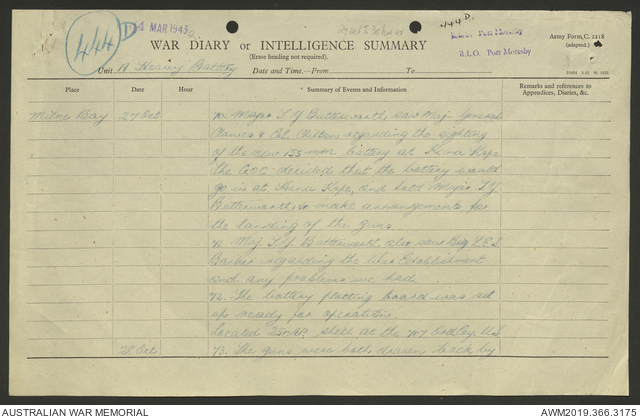 444D
MAR 1943
444D.
Port Moresby
R.L.O. Port Moresby
Army Form, C. 2118
(adapted.)
WAR DIARY or INTELLIGENCE SUMMARY
(Erase heading not required).
Unit "A" Heavy Battery Date and Time.—From To
Place Date Hour Summary of Events and Information Remarks and references to
Appendices, Diaries, &c.
Milne Bay 27 Oct 70. Major T J Butterworth, saw Maj. General
Clowes & Col. Clifton regarding the sighting
of the new 155 mm battery at
The G.O.C. decided that the battery would
go in at and told Major T J
Butterworth, to make arrangements for
the landing of the guns.
71. Maj. T J Butterworth, also saw Brig.
Barker regarding the War Establishment
and any problems we had.
72. The battery plotting board was set
up ready for operation.
Located shell at the U.S
28 Oct 73. The guns were both drawn back by
AUSTRALIAN WAR MEMORIAL
AWM2019.366.3175